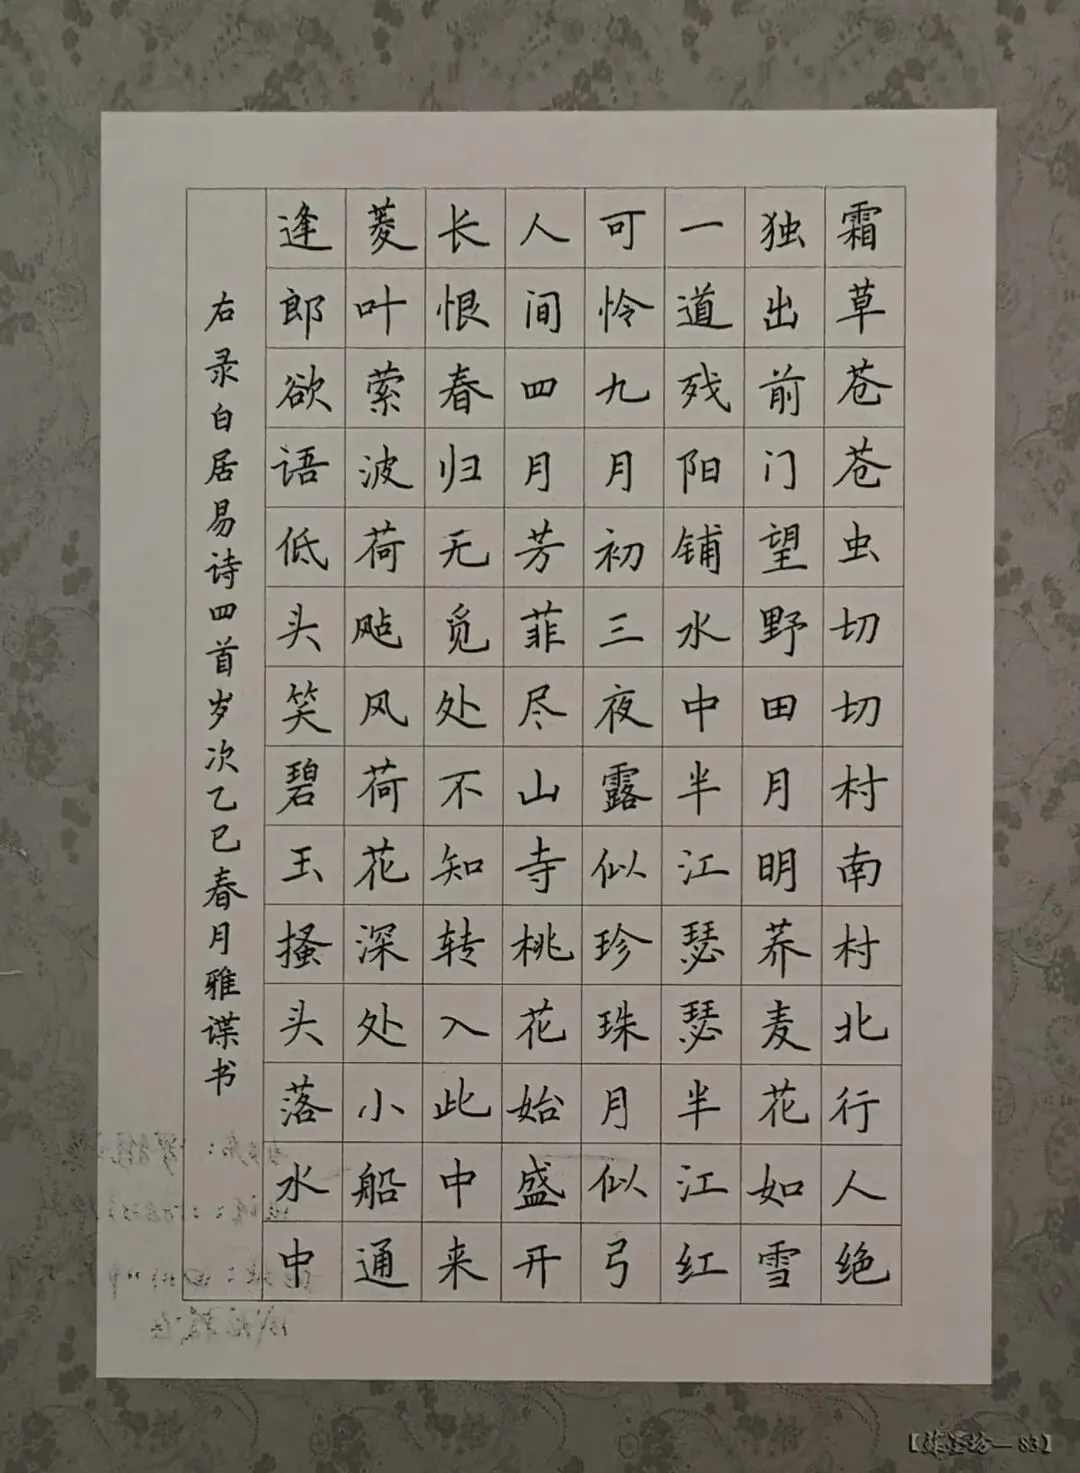 霜草苍苍虫切切村南村北行人绝
独出前门望野田月明荞麦花如雪
一道残阳铺水中半江瑟瑟半江红
可怜九月初三夜露似珍珠月似弓
人间四月芳菲尽山寺桃花始盛开
长恨春归无觅处不知转入此中来
菱叶萦波荷飐风荷花深处小船通
逢郎欲语低头笑碧玉搔头落水中
右录白居易诗四首岁次乙巳春月雅谋书